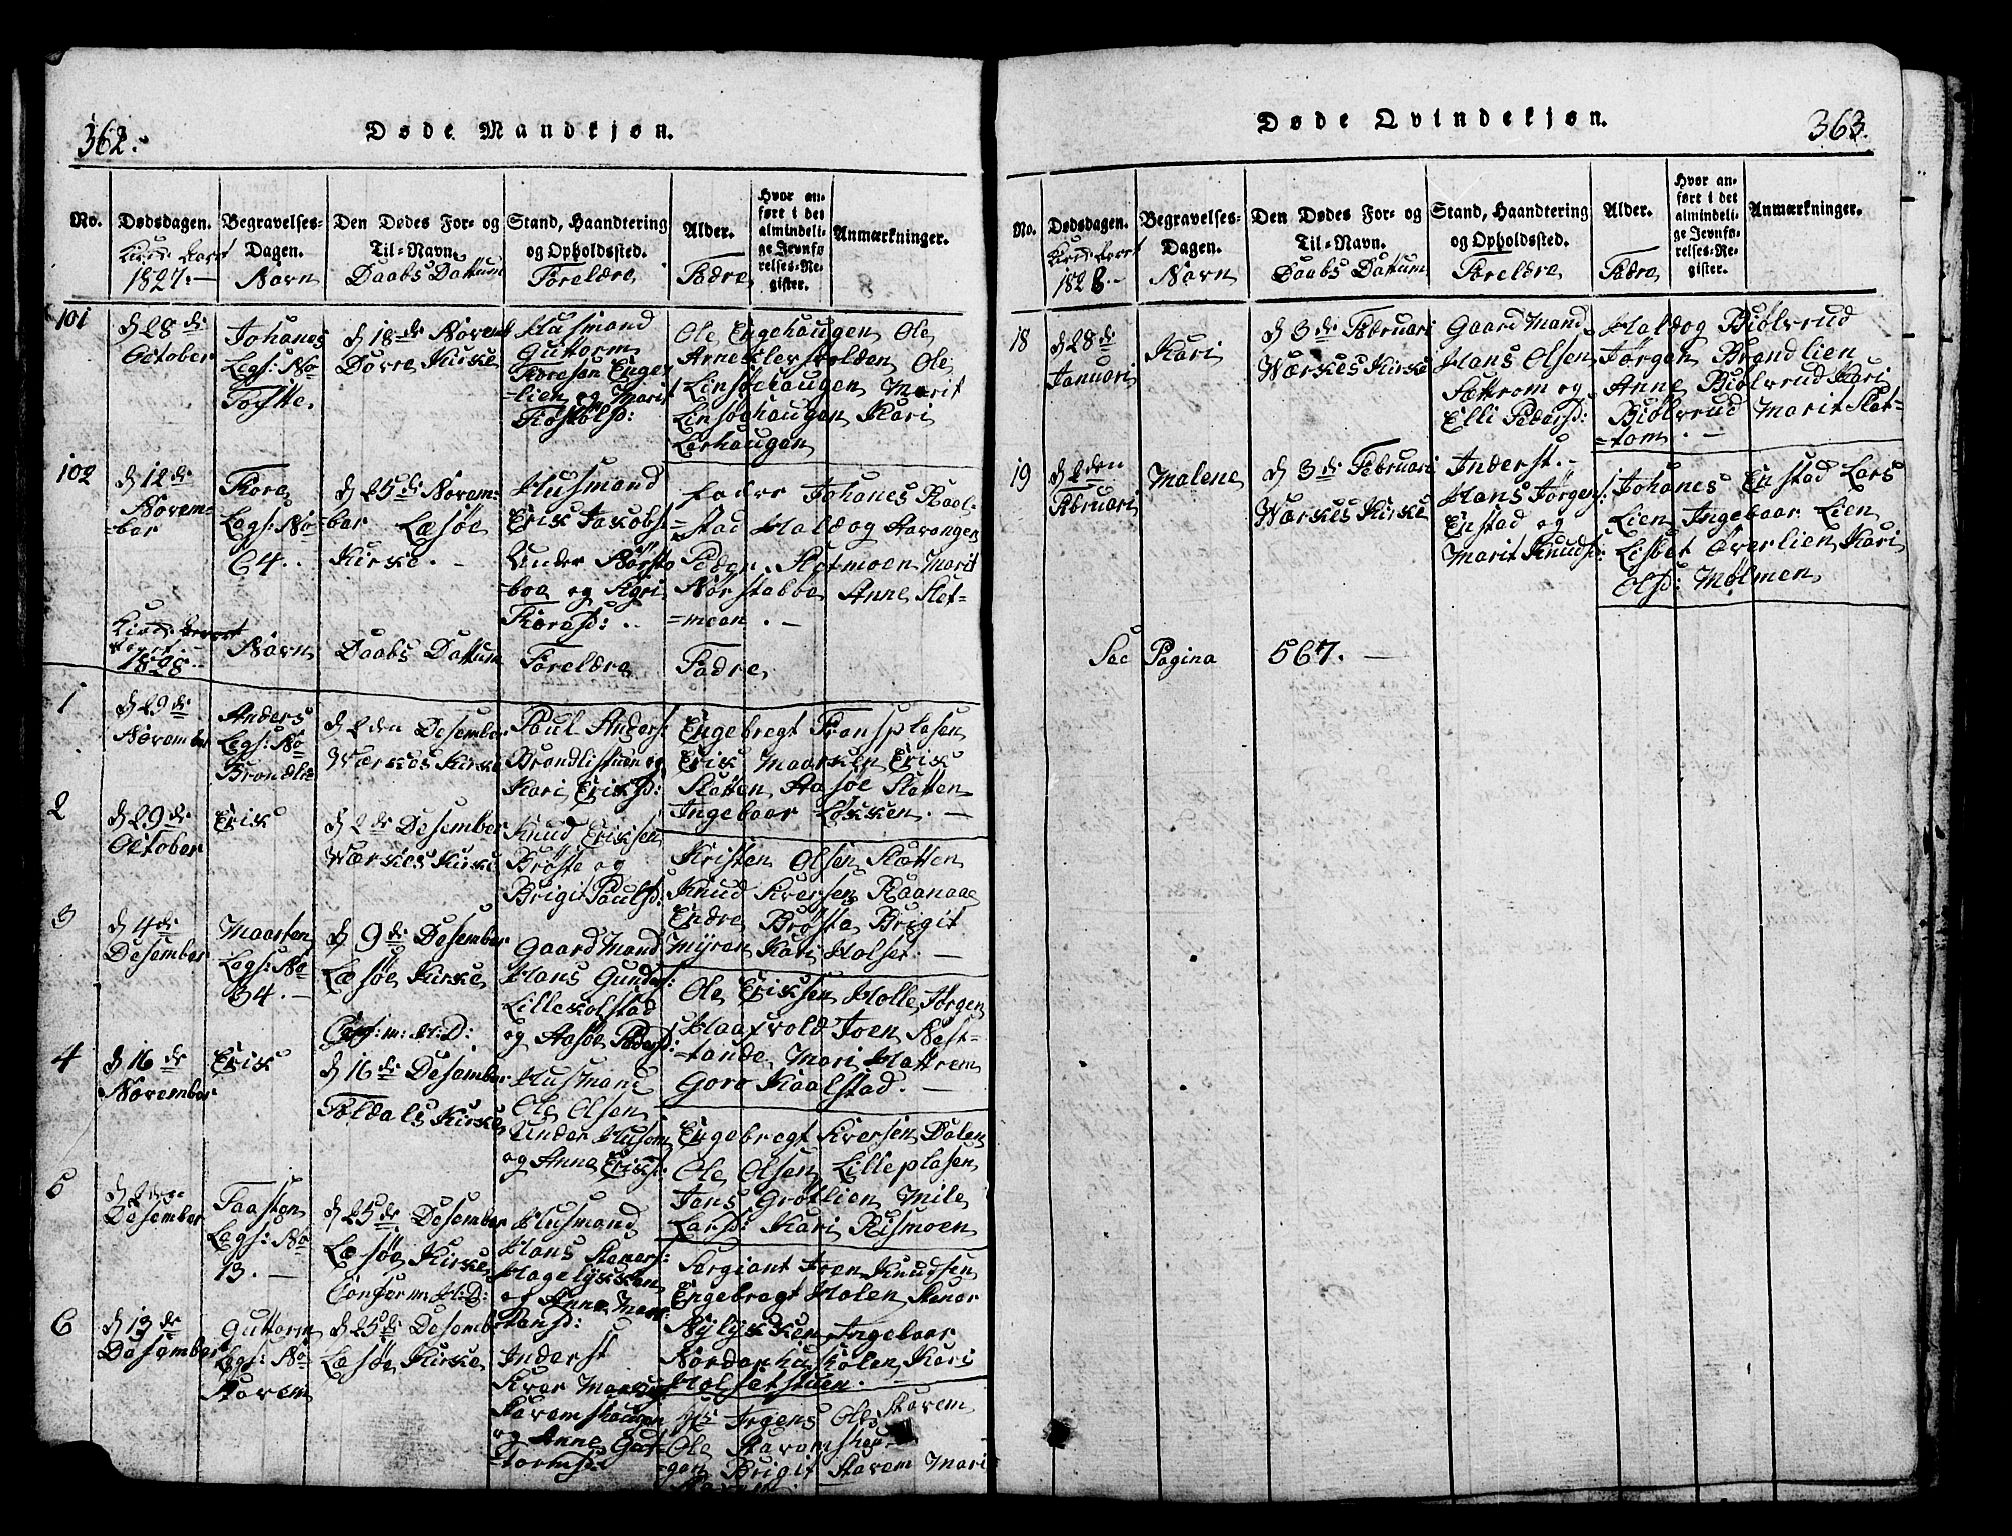 362.
Døde Mandkjøn.
No.
Dødsdagen.
Begravelses-
Dagen.
Den Dødes For- og
Til-Navn.
Stand, Haandtering
og Opholdssted.
Alder.
Hvor an-
ført i det
almindeli-
ge Jevnfø-
relses-Re-
gister.
Anmærkninger.
1827.
Navn
Daabs Dattum
Forældre
Fadre
101
d 28 de
October
Johanes
Legs: No
Toftte.
d 18 de Novemb
Dovre Kirke
Husmand
Guttorm
Toresen Enge
=lien og Marit
Ole Engehaugen Ole
Arneklevholden Ole
Linsøehaugen Marit
Linsøehaugen Kari
Lerhaugen
102
d 12 de
Novem-
=ber
Tore
Legs: No
64.
d 25 de Novem-
=ber Læsøe
Kirke.
Husmand
Erik Jakobs
Under Norsta
boe og Kari
Toresd:
Johanes Kaal-
=stad Haldog Stavenge
Peder Sletmoen Marit
Norstabbe Anne Slet=
=moen.
1828.
Navn
Daabs Dattum
Forældre
Fadre
1
d 29 de
November
Anders
Legs: No
Brændlie
d 2 den Desember
Værkes Kirke
Poul Anders:
Brendlistuen og
Kari Eriksd:
Engebregt Fonsplasen
Erik Maarsken Erik
Slotten Aasøe Slotten
Ingeboer Løkken.
2
d 29 de
October
Erik
d 2 de Desember
Værkes Kirke
Knud Eriksen
Brøste og
Brigit Paulsd:
Kristen Olsen Slætten
Knud Iversen Raanaae
Endre Brøste Brigit
Myren Kari Holset.
3
d 4 de
Desember
Maarten
Legs: No
34.
d 9 de Desember
Læsøe Kirke
Gaard Mand
Hans Gunders:
Lillekolstad
og Aasøe Pedersd:
Ole Eriksen Holle Jørgen
Haatvold Joen Nest-
=tande Mari Hattrem
Goro Kaalstad.
4
d 16 de
November
Erik
d 16 de Desember
Foldals Kirke
Husmand
Ole Olsen
Under Husom
og Anne Eriksd:
Engebregt Iversen Dalen
Ole Olsen Lilleplasen
Jens Grøtlien Mile
Larsd: Kari Rismoen
5
Desember
Faasten
Legs: No
13.
d 25 de Desember
Læsøe Kirke
Husmand
Hans Stener:
Hageløkken
og Anne
Sergiant Joen Knudsen
Engebregt Holen Stener
Nyløkken Ingeboer
Norderhuskolen Kari
Holsetstuen.
6
d 13 de
Desember
Guttorm
Legs: No
Stavem
d 25 de Desember
Læsøe Kirke
Inderst
Iver
Stavemshaugen
og Anne Gut-
=tormsd
Jrgens Ole Stavem
Ole Stavemshou-
gen Brigit Stavem Mari
363.
Døde Qvindekjøn.
No.
Dødsdagen.
Begravelses-
Dagen.
Den Dødes For- og
Til-Navn.
Stand, Haandtering
og Opholdssted.
Alder.
Hvor an-
ført i det
almindeli-
ge Jevnfø-
relses-Re-
gister.
Anmærkninger.
1828.
Navn
Daabs Dattum
Forældre
Fadre
18
d 28 de
Januari
Kari
d 3 de Februari
Værkes Kirke
Gaard Mand
Hans Olsen
Sættrom og
Elli Pedersd:
Haldog Biølvrud
Jørgen Brendlien
Anne Biølvrud Kari
Biølvrud Marit Slet=
=tom.
19
d 2 den
Februari
Malene
d 3 de Februari
Værkes Kirke
Inderst.
Hans Jørgens:
Enstad og
Marit Knudsd:
Johanes Enstad Lars
Lien Ingeboer Lien
Lisbet Øverlien Kari
Olsd: Mølmen
See Pagina 567.